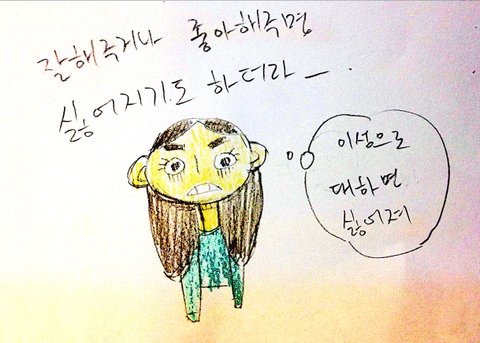 잘해주거나 좋아해주면
싫어지기도 하더라 —.
이성으로
대하면
싫어져